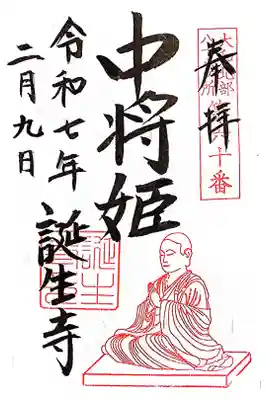 奉拝
中将姫
令和七年
二月九日
誕生寺
誕生